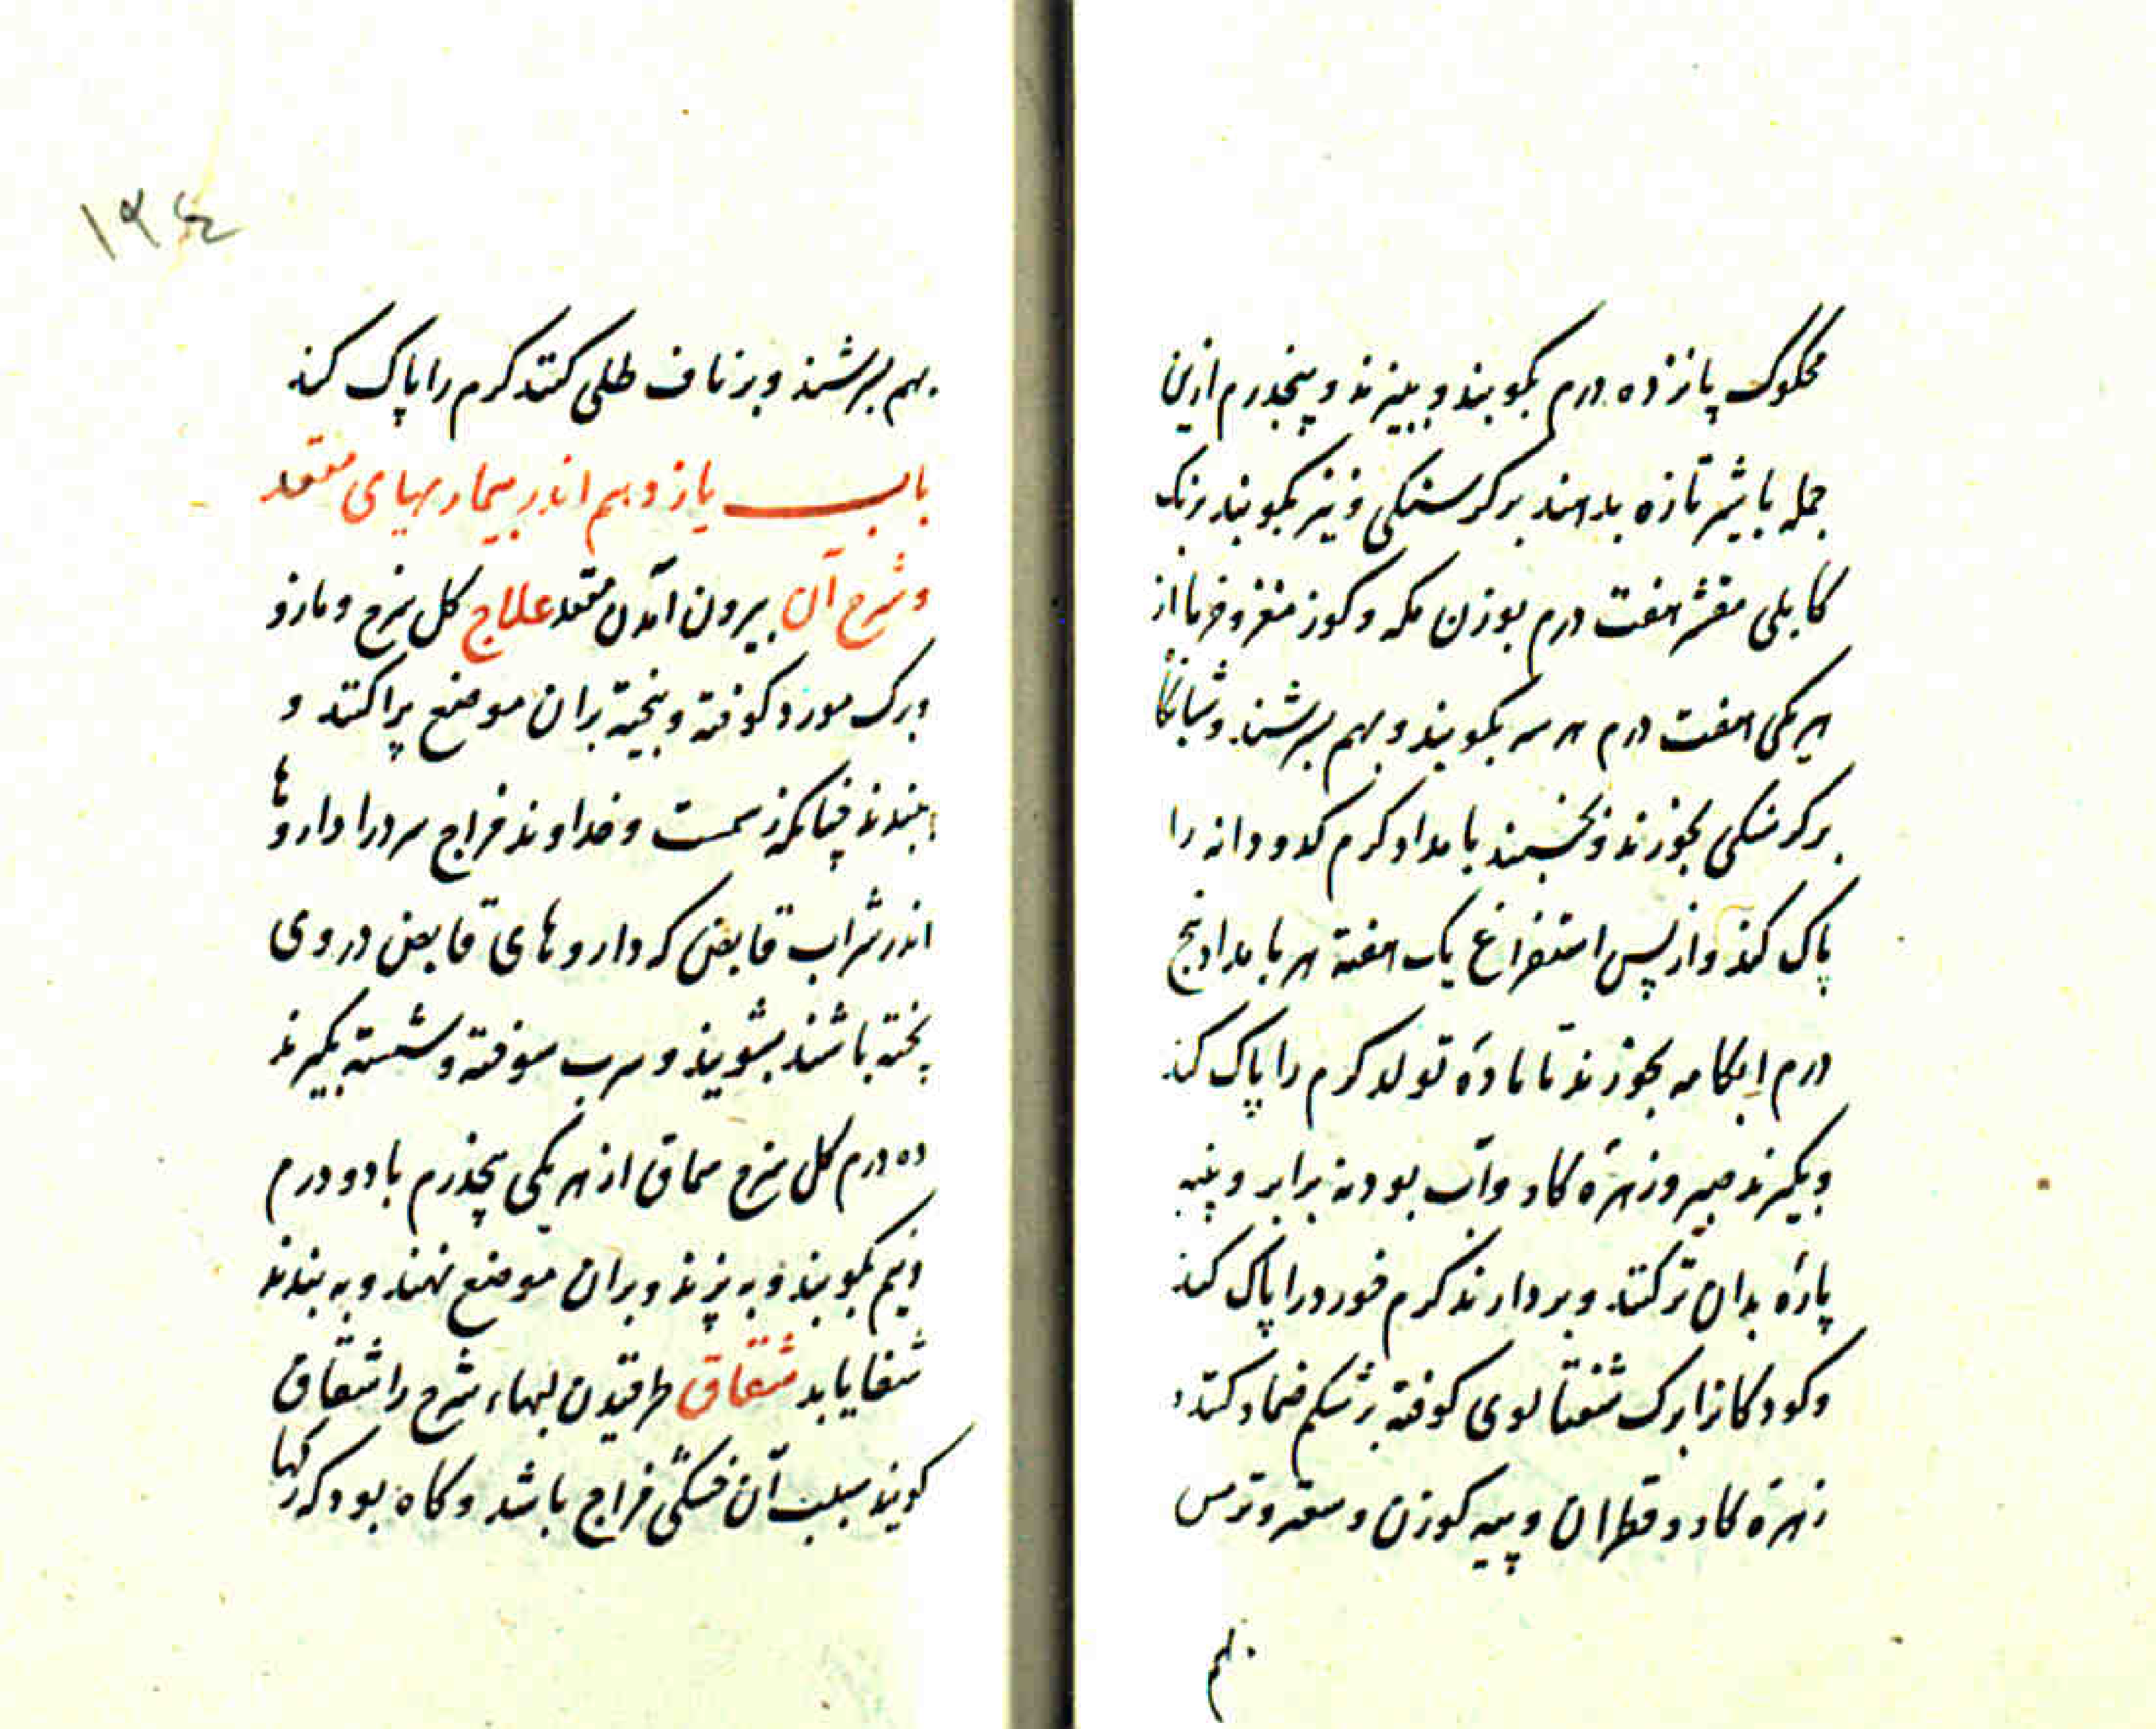 محکوک پانزده درم بکوبند و ببیزند و پنجدرم ازین
جمله با شیر تازه بدهند بر کرسنکی و نیز بکوبند برنک
کابلی مقشر هفت درم بوزن مکه و کوز مغز و خرما از
هر یکی هفت درم هر سه بکوبند و بهم بسرشند و شبانکاه
بر کرسنکی بخورند و بخسبند بامداد کرم کدو دانه را
پاک کند و از پس استفراغ یک هفته هر بامداد پنج
درم ابکامه بخورند تا مادهٔ تولد کرم را پاک کند
و بکیرند صبر و زهرهٔ کاو و آب بودنه برابر و پنبه
پارهٔ بدان تر کنند و بردارند کرم خورد را پاک کند
و کودکانرا برک شفتالوی کوفته بر شکم ضماد کنند و
زهرهٔ کاو و قطران و پیه کوزن و سعتر و ترمس
بهم
۱۹٤
بهم بسرشند و بر ناف طلی کنند کرم را پاک کند
باب یازدهم اندر بیماریهای مقعد
و شرح آن بیرون آمدن مقعد علاج کل سرخ و مازو
و برک مورد کوفته و بیخته بران موضع پراکنند و
ببندند چنانکه رسمست و خداوند مزاج سرد را داروها
اندر شراب قابض که داروهای قابض در وی
پخته باشند بشویند و سرب سوخته و شسته بکیرند
ده درم کل سرخ سماق از هر یکی پنجدرم بادو درم
و نیم بکوبند و به پزند و بران موضع نهند و به بندند
شفا یابد شقاق طرقیدن لبهاء شرح را شقاق
کویند سبب آن خشکی مزاج باشد و کاه بود که رکها